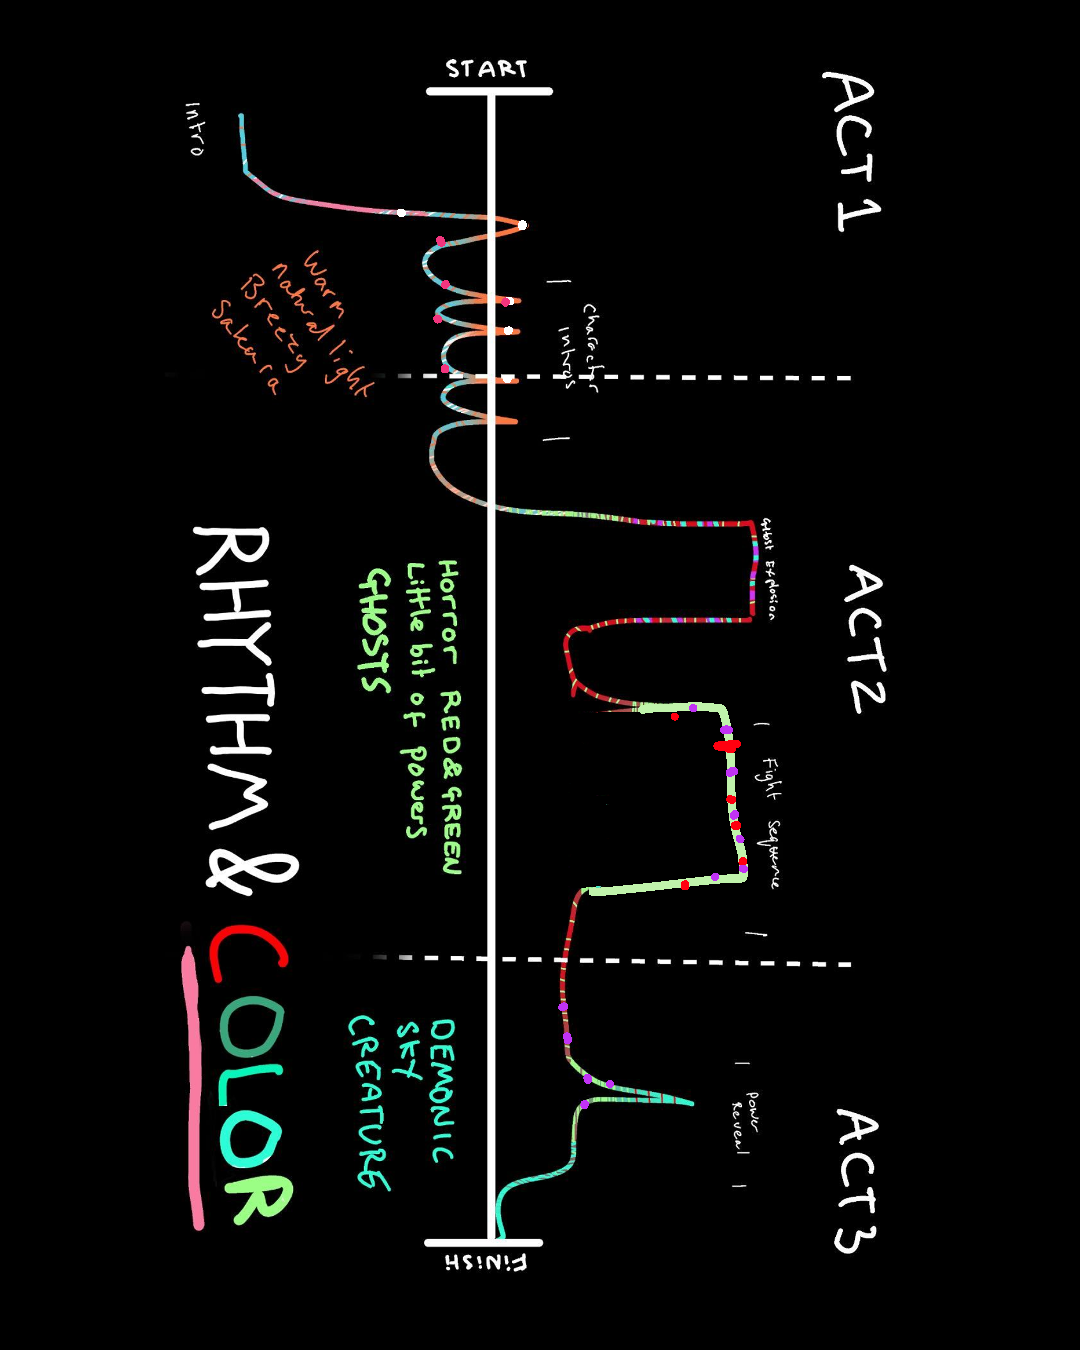 START
ACT 1
Intro
Character
Intros
Warm
natural light
Breezy
Sakura
ACT 2
Ghost Explosion
Fight Sequence
Horror RED & GREEN
Little bit of powers
GHOSTS
ACT 3
Power
Reveal
DEMONIC
SKY
CREATURE
RHYTHM & COLOR
FINISH